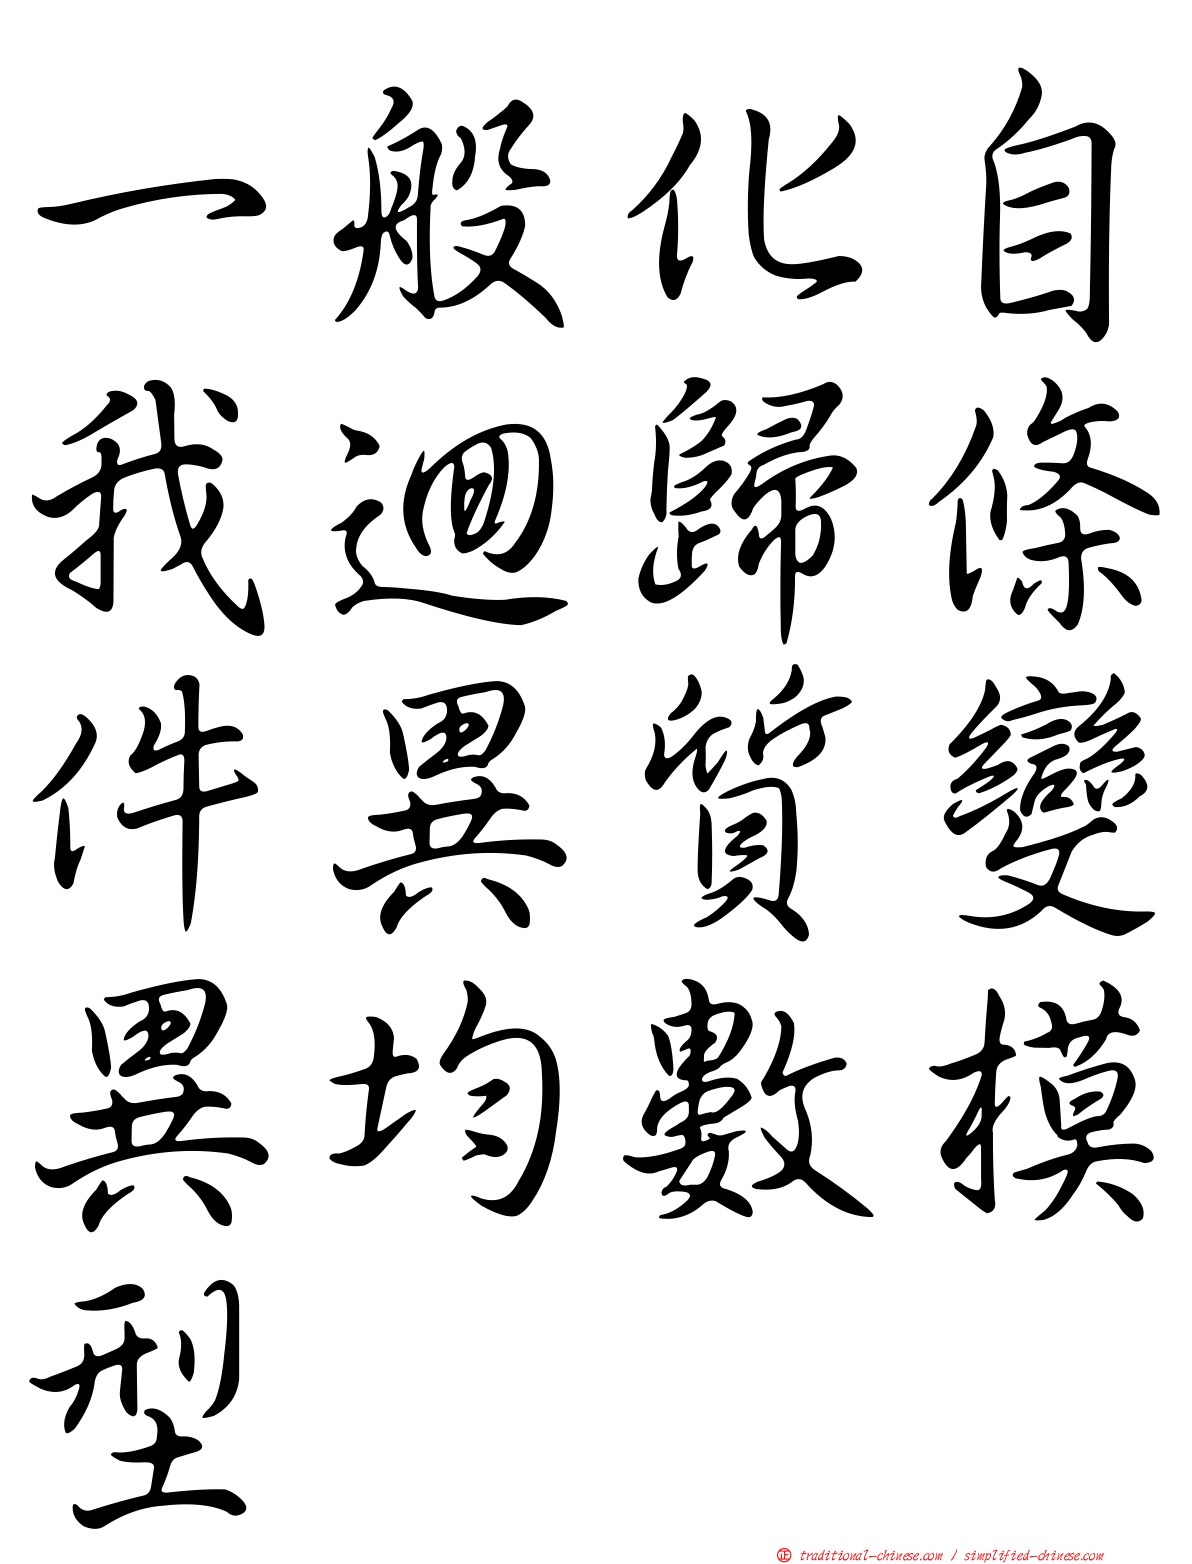 一般化自
我迴歸條
件異質變
異均數模
型
正 traditional-chinese.com / simplified-chinese.com